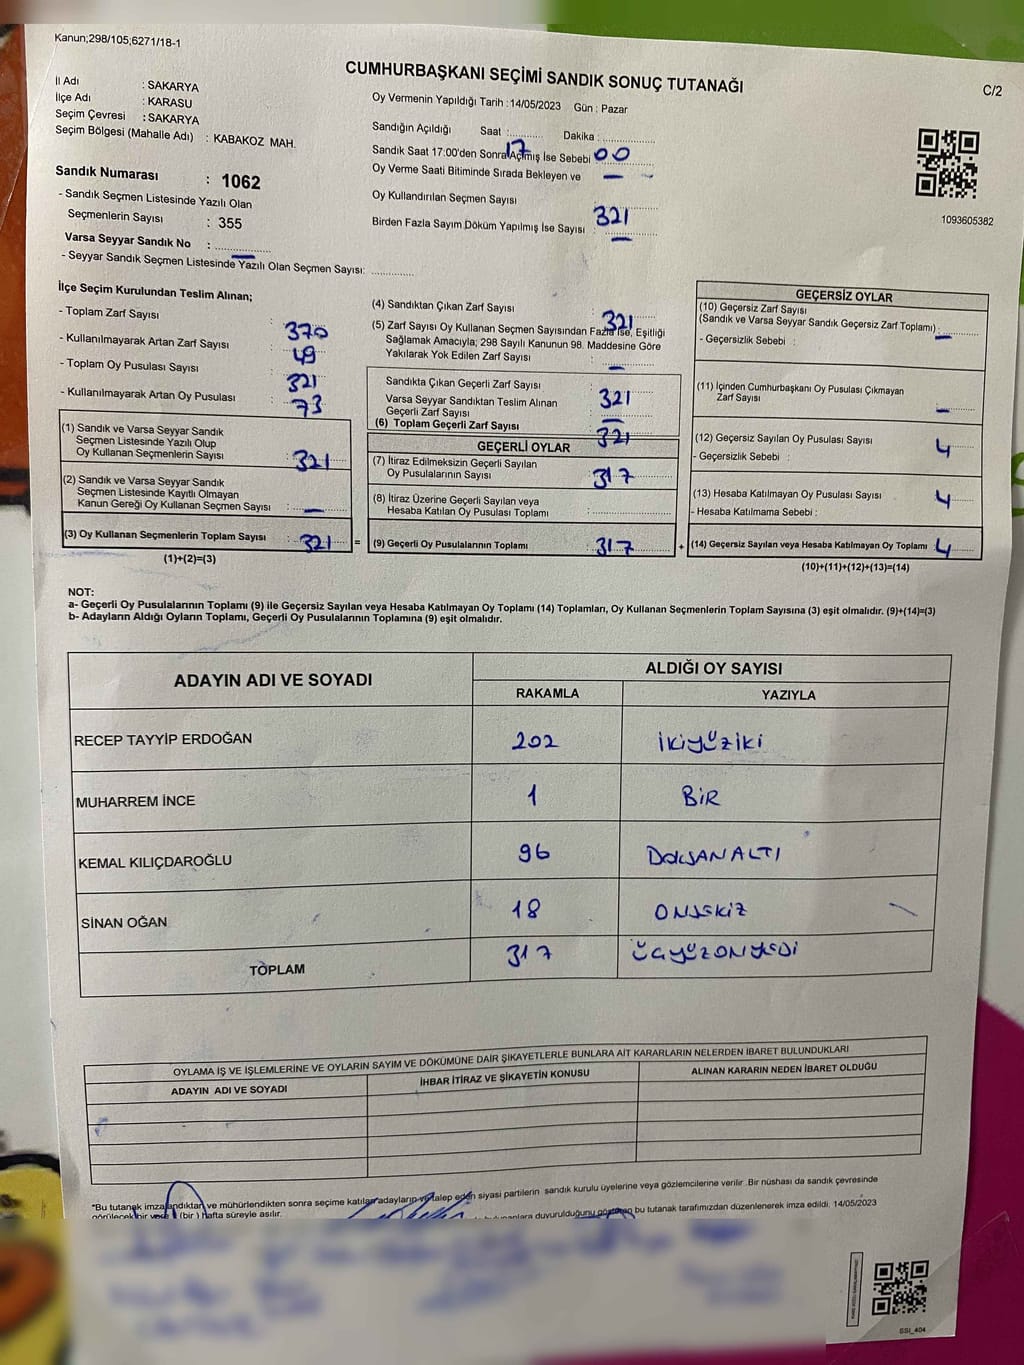 Kanun;298/105;6271/18-1
CUMHURBAŞKANI SEÇİMİ SANDIK SONUÇ TUTANAĞI
C/2
İl Adı : SAKARYA
İlçe Adı : KARASU
Seçim Çevresi : SAKARYA
Seçim Bölgesi (Mahalle Adı) : KABAKOZ MAH.
Sandık Numarası : 1062
- Sandık Seçmen Listesinde Yazılı Olan
Seçmenlerin Sayısı : 355
Varsa Seyyar Sandık No : —
- Seyyar Sandık Seçmen Listesinde Yazılı Olan Seçmen Sayısı: ............
Oy Vermenin Yapıldığı Tarih : 14/05/2023 Gün : Pazar
Sandığın Açıldığı Saat : 17 Dakika : 00
Sandık Saat 17:00'den Sonra Açmış İse Sebebi
Oy Verme Saati Bitiminde Sırada Bekleyen ve —
Oy Kullandırılan Seçmen Sayısı 321
Birden Fazla Sayım Döküm Yapılmış İse Sayısı —
1093605382
İlçe Seçim Kurulundan Teslim Alınan;
- Toplam Zarf Sayısı : 370
- Kullanılmayarak Artan Zarf Sayısı : 49
- Toplam Oy Pusulası Sayısı : 321
- Kullanılmayarak Artan Oy Pusulası : 73
(1) Sandık ve Varsa Seyyar Sandık
Seçmen Listesinde Yazılı Olup
Oy Kullanan Seçmenlerin Sayısı : 321
(2) Sandık ve Varsa Seyyar Sandık
Seçmen Listesinde Kayıtlı Olmayan
Kanun Gereği Oy Kullanan Seçmen Sayısı : —
(3) Oy Kullanan Seçmenlerin Toplam Sayısı : 321
(1)+(2)=(3)
=
(4) Sandıktan Çıkan Zarf Sayısı : 321
(5) Zarf Sayısı Oy Kullanan Seçmen Sayısından Fazla İse, Eşitliği
Sağlamak Amacıyla; 298 Sayılı Kanunun 98. Maddesine Göre
Yakılarak Yok Edilen Zarf Sayısı : —
Sandıkta Çıkan Geçerli Zarf Sayısı : 321
Varsa Seyyar Sandıktan Teslim Alınan
Geçerli Zarf Sayısı : —
(6) Toplam Geçerli Zarf Sayısı : 321
GEÇERLİ OYLAR
(7) İtiraz Edilmeksizin Geçerli Sayılan
Oy Pusulalarının Sayısı : 317
(8) İtiraz Üzerine Geçerli Sayılan veya
Hesaba Katılan Oy Pusulası Toplamı :
(9) Geçerli Oy Pusulalarının Toplamı : 317
+
GEÇERSİZ OYLAR
(10) Geçersiz Zarf Sayısı
(Sandık ve Varsa Seyyar Sandık Geçersiz Zarf Toplamı) : —
- Geçersizlik Sebebi :
(11) İçinden Cumhurbaşkanı Oy Pusulası Çıkmayan
Zarf Sayısı : —
(12) Geçersiz Sayılan Oy Pusulası Sayısı : 4
- Geçersizlik Sebebi :
(13) Hesaba Katılmayan Oy Pusulası Sayısı : 4
- Hesaba Katılmama Sebebi :
(14) Geçersiz Sayılan veya Hesaba Katılmayan Oy Toplamı : 4
(10)+(11)+(12)+(13)=(14)
NOT:
a- Geçerli Oy Pusulalarının Toplamı (9) ile Geçersiz Sayılan veya Hesaba Katılmayan Oy Toplamı (14) Toplamları, Oy Kullanan Seçmenlerin Toplam Sayısına (3) eşit olmalıdır. (9)+(14)=(3)
b- Adayların Aldığı Oyların Toplamı, Geçerli Oy Pusulalarının Toplamına (9) eşit olmalıdır.
ADAYIN ADI VE SOYADI
ALDIĞI OY SAYISI
RAKAMLA YAZIYLA
RECEP TAYYİP ERDOĞAN 202 İKİYÜZİKİ
MUHARREM İNCE 1 BİR
KEMAL KILIÇDAROĞLU 96 DOKSANALTI
SİNAN OĞAN 18 ONSEKİZ
TOPLAM 317 ÜÇYÜZONYEDİ
OYLAMA İŞ VE İŞLEMLERİNE VE OYLARIN SAYIM VE DÖKÜMÜNE DAİR ŞİKAYETLERLE BUNLARA AİT KARARLARIN NELERDEN İBARET BULUNDUKLARI
ADAYIN ADI VE SOYADI İHBAR İTİRAZ VE ŞİKAYETİN KONUSU ALINAN KARARIN NEDEN İBARET OLDUĞU
*Bu tutanak imzalandıktan ve mühürlendikten sonra seçime katılan adayların ve talep eden siyasi partilerin sandık kurulu üyelerine veya gözlemcilerine verilir .Bir nüshası da sandık çevresinde
görülecek bir yere 1 (bir ) hafta süreyle asılır. duyurulduğunu gösteren bu tutanak tarafımızdan düzenlenerek imza edildi. 14/05/2023
SSİ_404